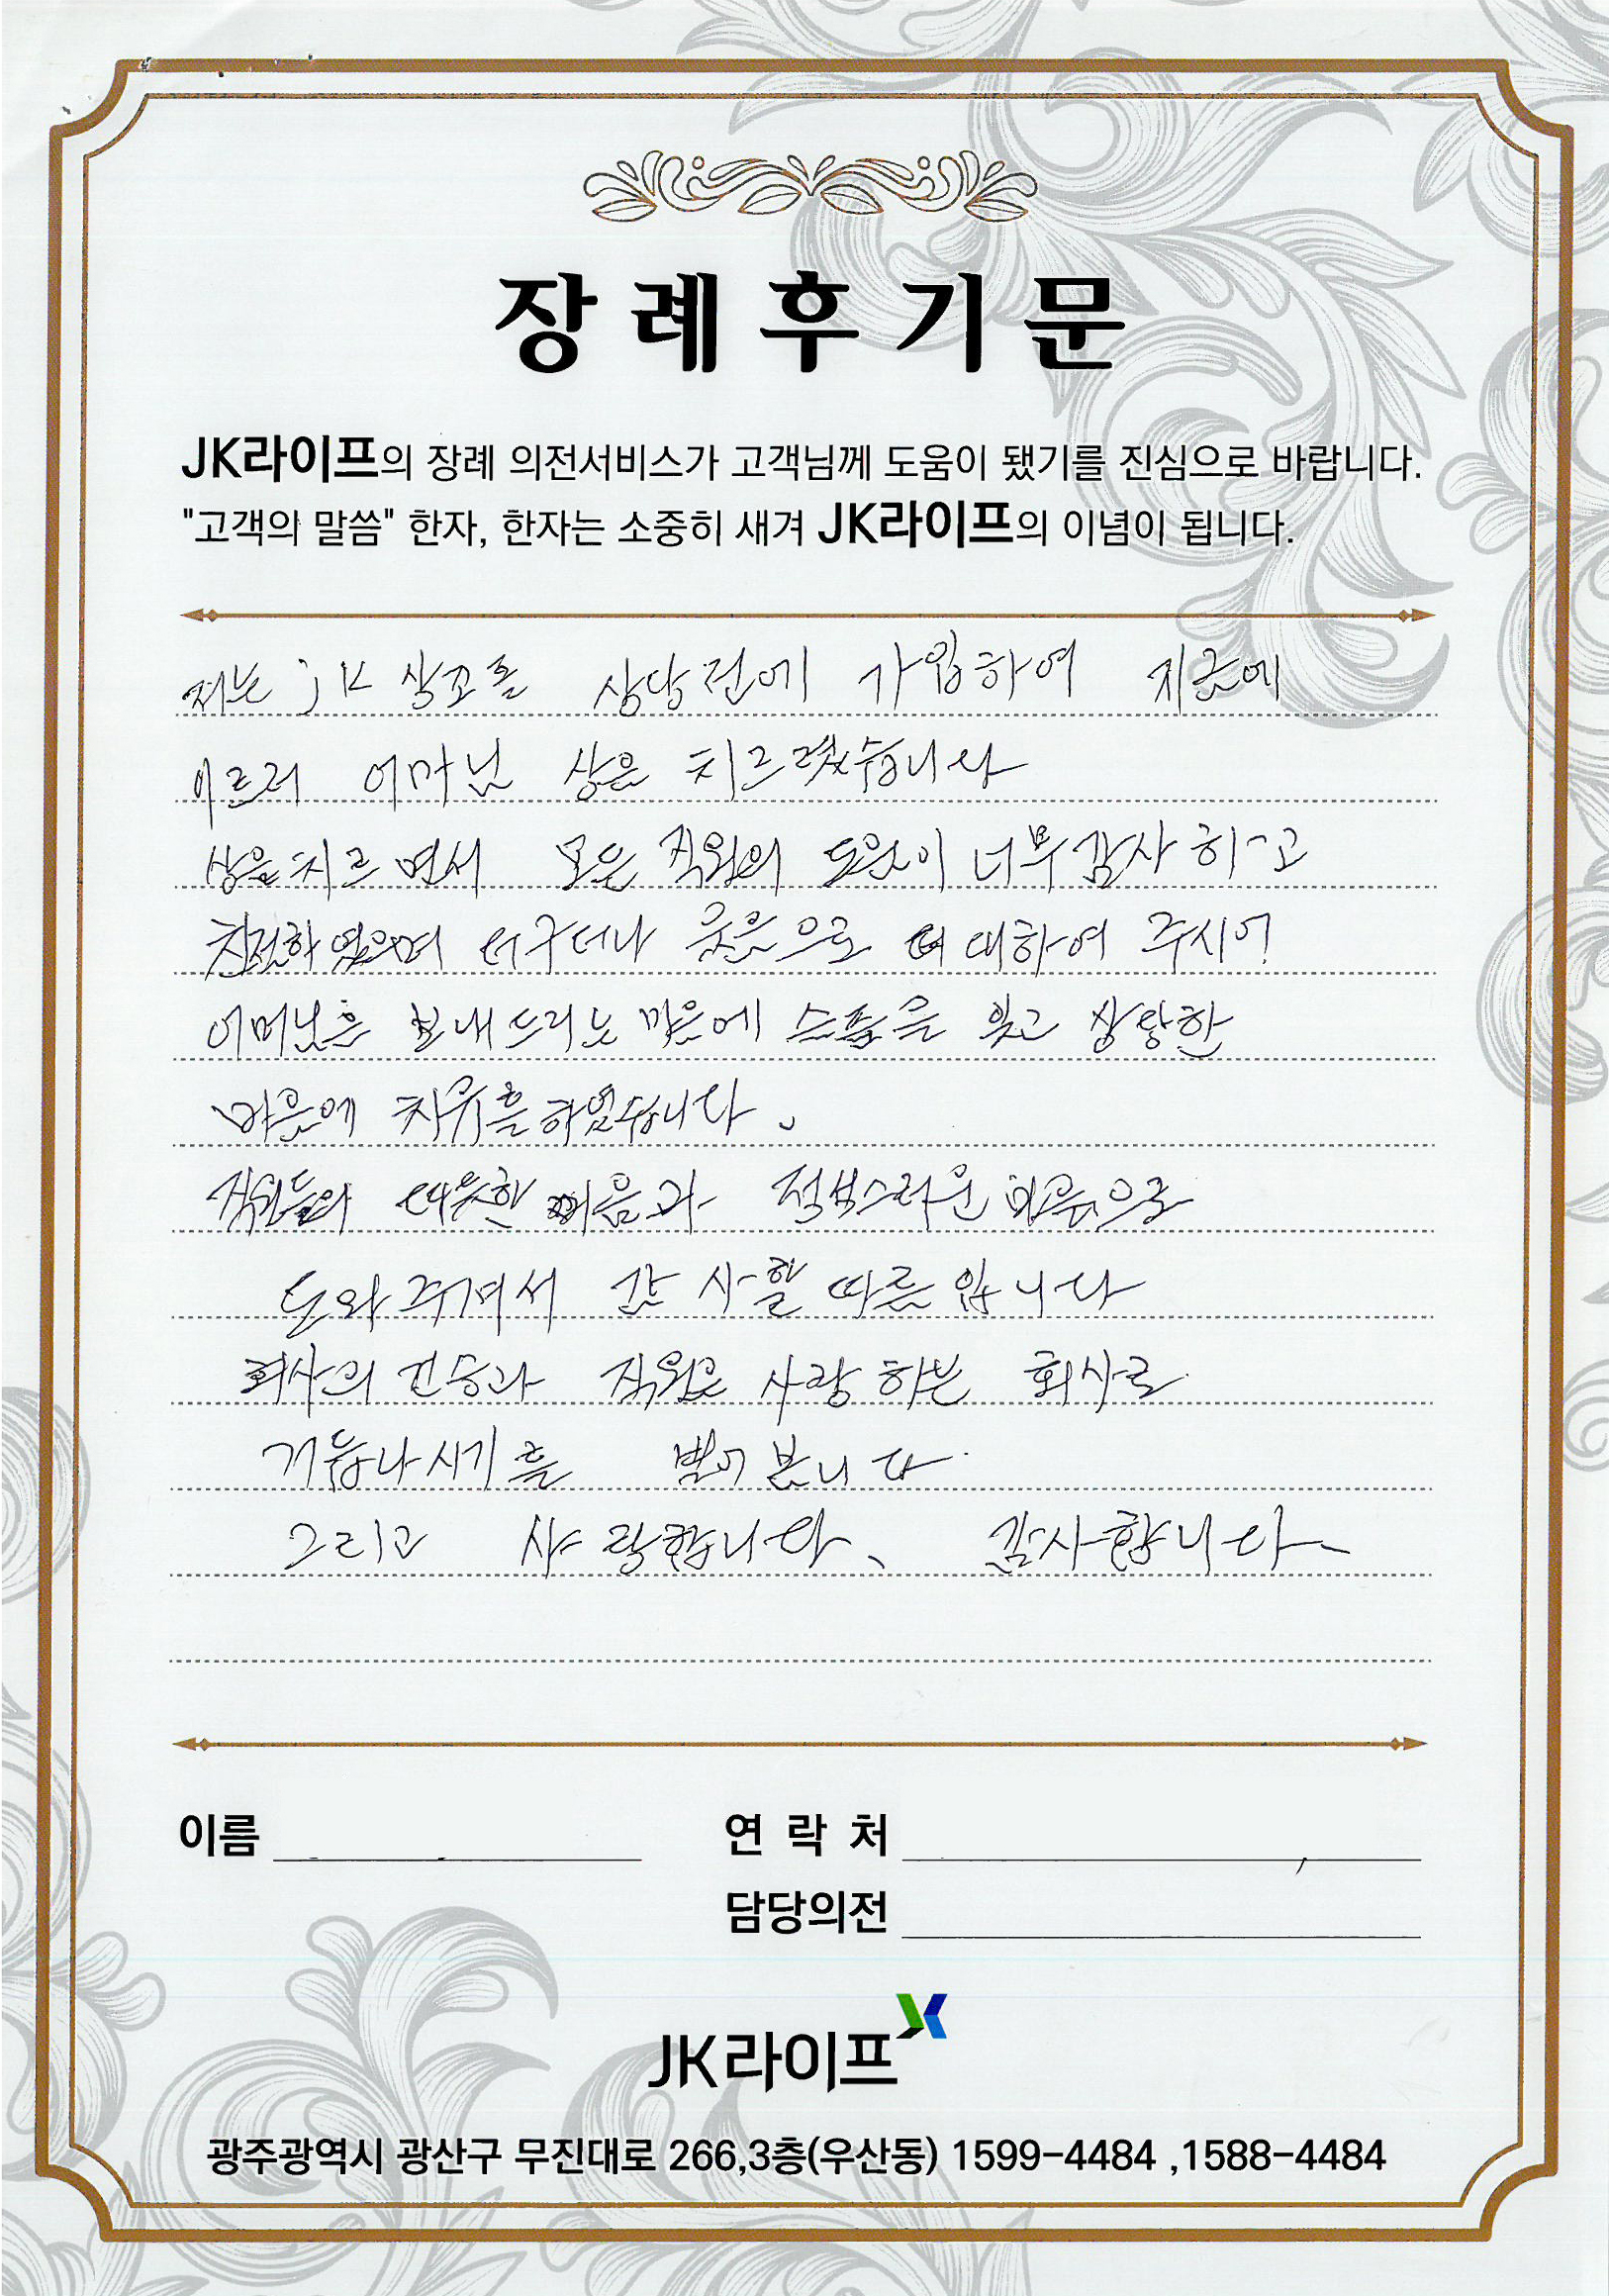 장례후기문
JK라이프의 장례 의전서비스가 고객님께 도움이 됐기를 진심으로 바랍니다.
"고객의 말씀" 한자, 한자는 소중히 새겨 JK라이프의 이념이 됩니다.
저는 jk 상조를 상담전에 가입하여 지금에
이르러 어머님 상을 치르렸습니다
상을 치르면서 모든 직원의 도움이 너무 감사하고
친절하였으며 더구더나 웃음으로 대하여 주시어
어머님을 보내드리는 마음에 슬픔을 잊고 상황한
마음에 치유를 하였습니다.
직원들의 따뜻한 마음과 마음으로
도와주셔서 감사할 따름입니다
회사의 건승과 직원은 사랑하는 회사로
거듭나시기를 빌어 봅니다.
그리고 사랑합니다. 감사합니다.
이름 연 락 처
담당의전
JK라이프
광주광역시 광산구 무진대로 266,3층(우산동) 1599-4484 ,1588-4484